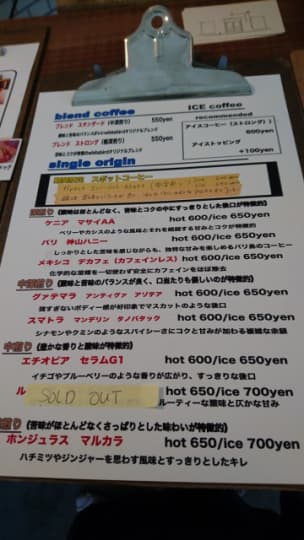 blend coffee
ICE coffee
ブレンド スタンダード (中深煎り) 550yen
ブレンド ストロング (極深煎り) 550yen
recommended
アイスコーヒー (ストロング)
600yen
アイストッピング
+100yen
single origin
スポットコーヒー
(酸味はほとんどなく、苦味とコクの中にすっきりとした後口が特徴的)
ケニア マサイAA hot 600/ice 650yen
ベリーやカシスのような風味とそれを締める甘みとコクが特徴的
バリ 神山ハニー hot 600/ice 650yen
しっかりとした苦味を感じながらも、独特な甘みを楽しめるバリ島のコーヒー
メキシコ デカフェ (カフェインレス) hot 600/ice 650yen
化学的な溶媒を一切使わず安全にカフェインをほぼ除去
(酸味と苦味のバランスが良く、口当たり優しいのが特徴的)
グァテマラ アンティグァ アゾテア hot 600/ice 650yen
強すぎないボディー感が好印象でマスカットのような後口
スマトラ マンデリン タノバタック hot 600/ice 650yen
シナモンやクミンのようなスパイシーさにコクと甘みが加わる複雑な余韻
中煎り (豊かな香りと酸味が特徴的)
エチオピア セラムG1 hot 600/ice 650yen
イチゴやブルーベリーのような香りが広がり、すっきりな後口
ル SOLD OUT hot 650/ice 700yen
ルーティーな酸味と仄かな甘み
煎り (苦味がほとんどなくさっぱりとした味わいが特徴的)
ホンジュラス マルカラ hot 650/ice 700yen
ハチミツやジンジャーを思わす風味とすっきりとしたキレ